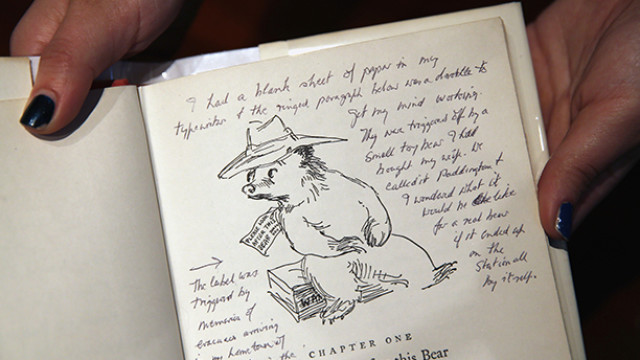 I had a blank sheet of paper in my
typewriter & the ringed paragraph below was a doodle to
get my mind working.
They were triggered off by a
small toy bear I had
bought my wife. We
called it Paddington &
I wondered what it
would be like
for a real bear
if it ended up
on the
Station all
by itself.
PLEASE LOOK
AFTER THIS
BEAR
WAN
The label was
triggered by
memories of
evacuees arriving
in my home town of
in the
CHAPTER ONE
this Bear